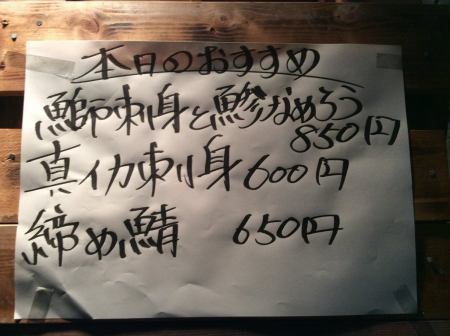 本日のおすすめ
鰤刺身と鯵なめろう
850円
真イカ刺身 600円
締め鯖 650円